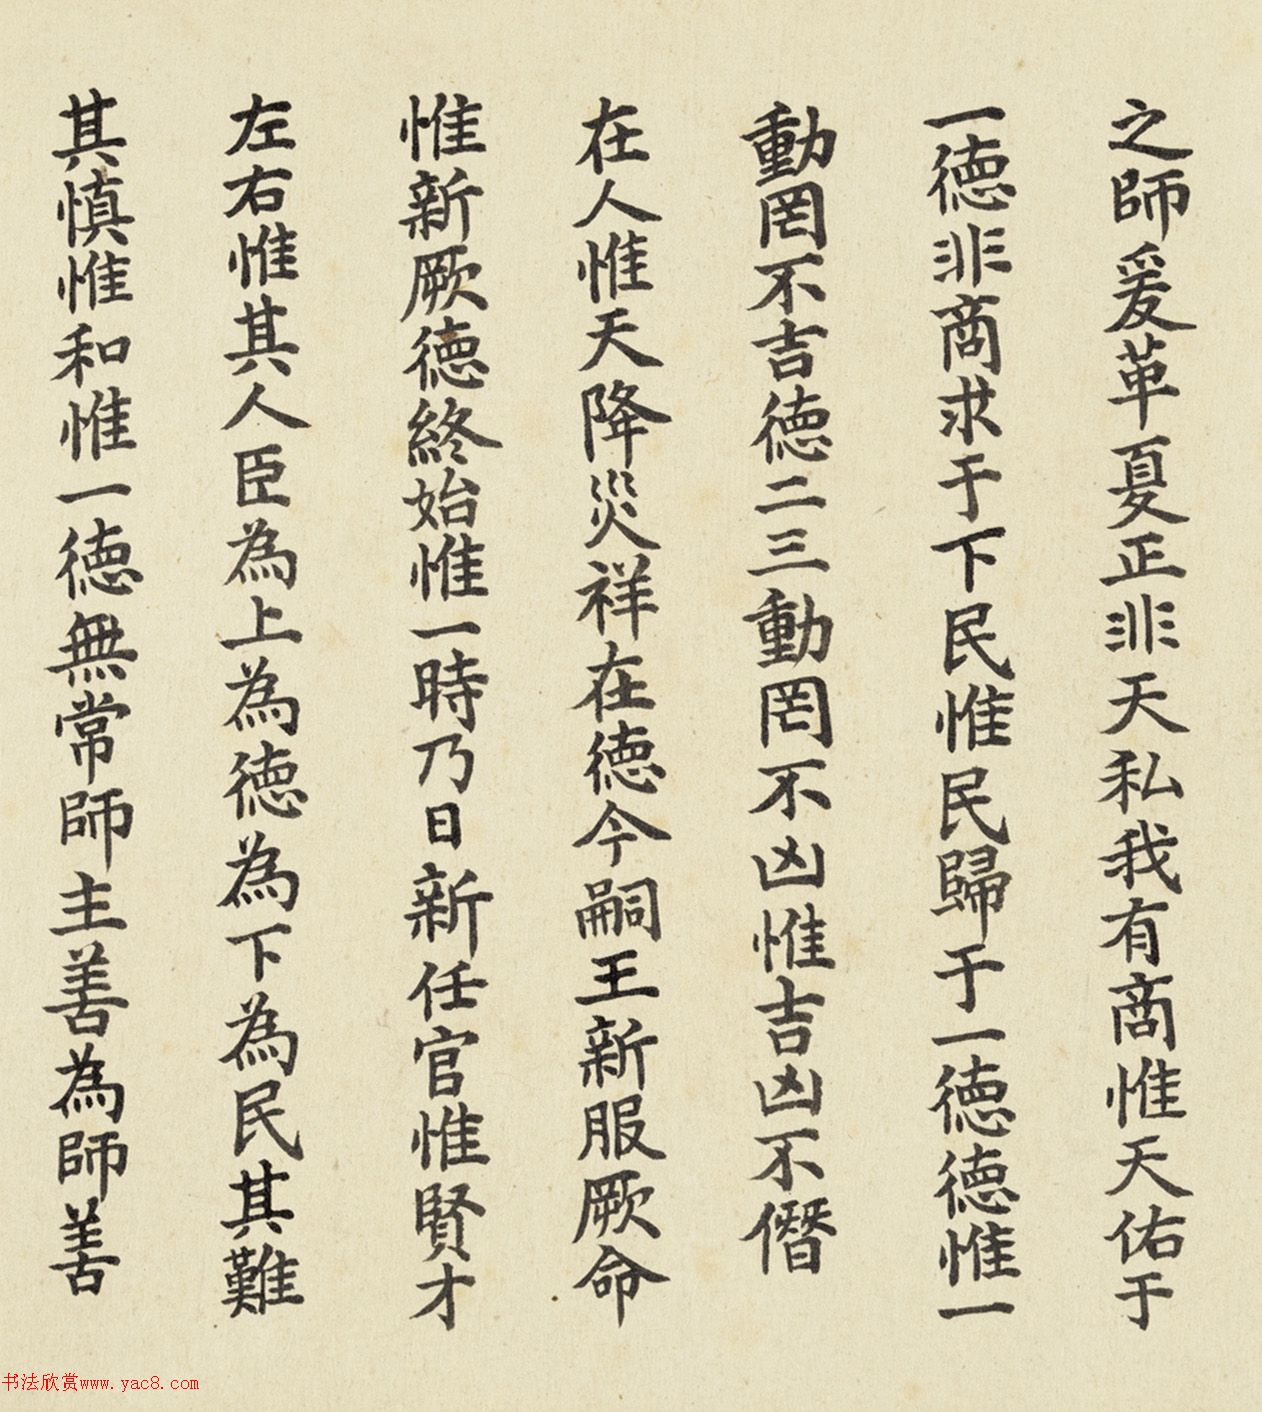 之師爰革夏正非天私我有商惟天佑于
一德非商求于下民惟民歸于一德德惟一
動罔不吉德二三動罔不凶惟吉凶不僭
在人惟天降災祥在德今嗣王新服厥命
惟新厥德終始惟一時乃日新任官惟賢才
左右惟其人臣為上為德為下為民其難
其慎惟和惟一德無常師主善為師善
书法欣赏www.yac8.com